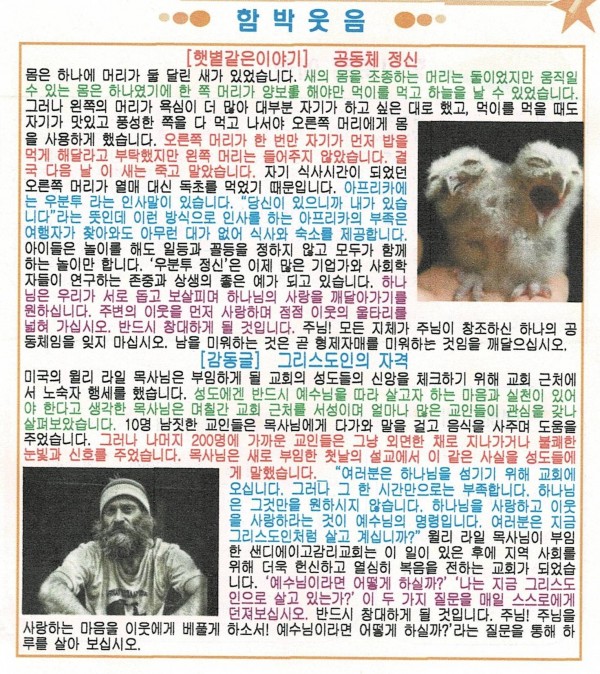 함박웃음
[햇볕같은이야기] 공동체 정신
몸은 하나에 머리가 둘 달린 새가 있었습니다. 새의 몸을 조종하는 머리는 둘이었지만 움직일
수 있는 몸은 하나였기에 한 쪽 머리가 양보를 해야만 먹이를 먹고 하늘을 날 수 있었습니다.
그러나 왼쪽의 머리가 욕심이 더 많아 대부분 자기가 하고 싶은 대로 했고, 먹이를 먹을 때도
자기가 맛있고 풍성한 쪽을 다 먹고 나서야 오른쪽 머리에게 몸
을 사용하게 했습니다. 오른쪽 머리가 한 번만 자기가 먼저 밥을
먹게 해달라고 부탁했지만 왼쪽 머리는 들어주지 않았습니다. 결
국 다음 날 이 새는 죽고 말았습니다. 자기 식사시간이 되었던
오른쪽 머리가 열매 대신 독초를 먹었기 때문입니다. 아프리카에
는 우분투 라는 인사말이 있습니다. “당신이 있으니까 내가 있습
니다”라는 뜻인데 이런 방식으로 인사를 하는 아프리카의 부족은
여행자가 찾아와도 아무런 대가 없이 식사와 숙소를 제공합니다.
아이들은 놀이를 해도 일등과 꼴등을 정하지 않고 모두가 함께
하는 놀이만 합니다. ‘우분투 정신’은 이제 많은 기업가와 사회학
자들이 연구하는 존중과 상생의 좋은 예가 되고 있습니다. 하나
님은 우리가 서로 돕고 보살피며 하나님의 사랑을 깨달아가기를
원하십니다. 주변의 이웃을 먼저 사랑하며 점점 이웃의 울타리를
넓혀 가십시오. 반드시 창대하게 될 것입니다. 주님! 모든 지체가 주님이 창조하신 하나의 공
동체임을 잊지 마십시오. 남을 미워하는 것은 곧 형제자매를 미워하는 것임을 깨달으십시오.
[감동글] 그리스도인의 자격
미국의 윌리 라일 목사님은 부임하게 될 교회의 성도들의 신앙을 체크하기 위해 교회 근처에
서 노숙자 행세를 했습니다. 성도에겐 반드시 예수님을 따라 살고자 하는 마음과 실천이 있어
야 한다고 생각한 목사님은 며칠간 교회 근처를 서성이며 얼마나 많은 교인들이 관심을 갖나
살펴보았습니다. 10명 남짓한 교인들은 목사님에게 다가와 말을 걸고 음식을 사주며 도움을
주었습니다. 그러나 나머지 200명에 가까운 교인들은 그냥 외면한 채로 지나가거나 불쾌한
눈빛과 신호를 주었습니다. 목사님은 새로 부임한 첫날의 설교에서 이 같은 사실을 성도들에
게 말했습니다. “여러분은 하나님을 섬기기 위해 교회에
오십니다. 그러나 그 한 시간만으로는 부족합니다. 하나님
은 그것만을 원하시지 않습니다. 하나님을 사랑하고 이웃
을 사랑하라는 것이 예수님의 명령입니다. 여러분은 지금
그리스도인처럼 살고 계십니까?” 윌리 라일 목사님이 부임
한 샌디에이고감리교회는 이 일이 있은 후에 지역 사회를
위해 더욱 헌신하고 열심히 복음을 전하는 교회가 되었습니
다. ‘예수님이라면 어떻게 하실까?’ ‘나는 지금 그리스도
인으로 살고 있는가?’ 이 두 가지 질문을 매일 스스로에게
던져보십시오. 반드시 창대하게 될 것입니다. 주님! 주님을
사랑하는 마음을 이웃에게 베풀게 하소서! 예수님이라면 어떻게 하실까?’라는 질문을 통해 하
루를 살아 보십시오.